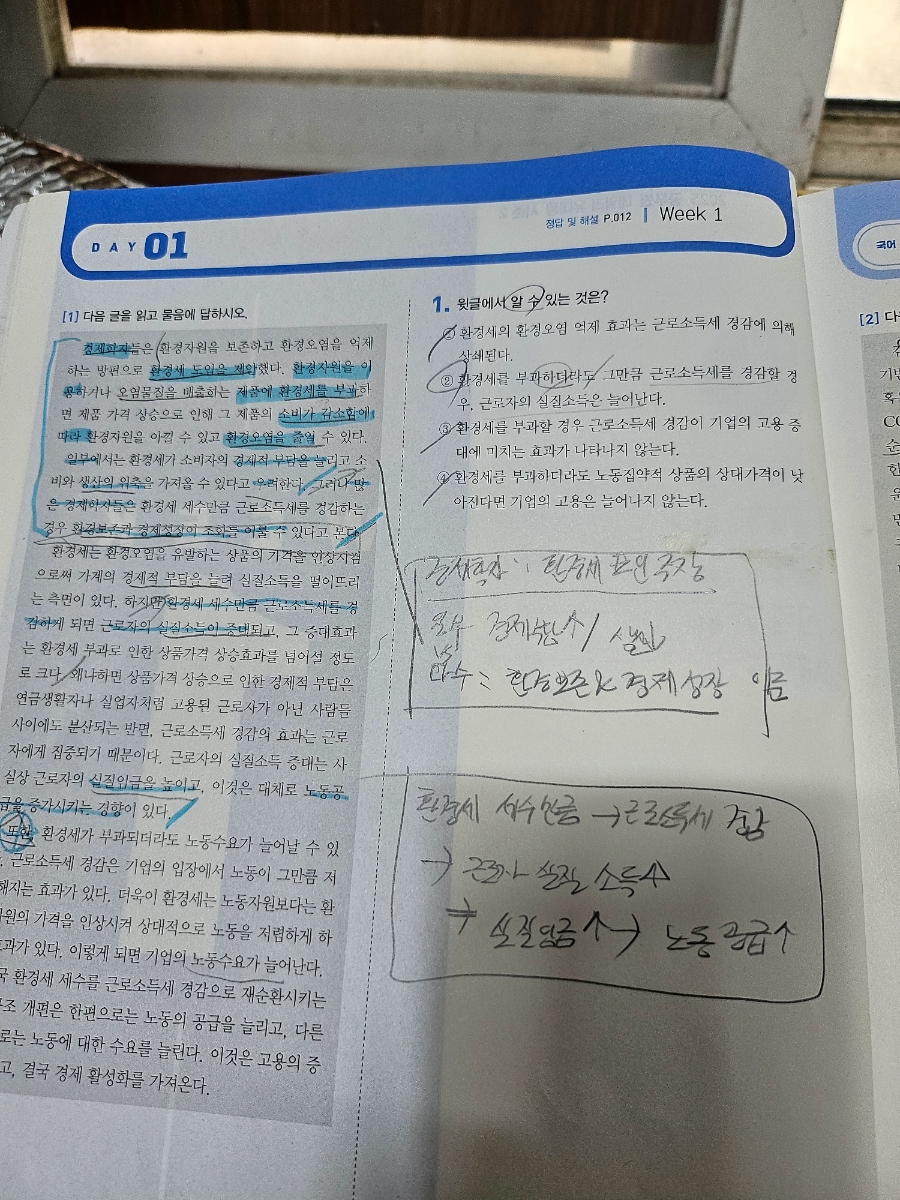 DAY 01
정답 및 해설 P.012 | Week 1
[1] 다음 글을 읽고 물음에 답하시오.
경제학자들은 환경자원을 보존하고 환경오염을 억제
하는 방편으로 환경세 도입을 제안했다. 환경자원을 이
용하거나 오염물질을 배출하는 제품에 환경세를 부과하
면 제품 가격 상승으로 인해 그 제품의 소비가 감소함에
따라 환경자원을 아낄 수 있고 환경오염을 줄일 수 있다.
일부에서는 환경세가 소비자의 경제적 부담을 늘리고 소
비와 생산의 위축을 가져올 수 있다고 우려한다. 그러나 많
은 경제학자들은 환경세 세수만큼 근로소득세를 경감하는
경우 환경보존과 경제성장이 조화를 이룰 수 있다고 본다.
환경세는 환경오염을 유발하는 상품의 가격을 인상시킴
으로써 가계의 경제적 부담을 늘려 실질소득을 떨어뜨리
는 측면이 있다. 하지만 환경세 세수만큼 근로소득세를 경
감하게 되면 근로자의 실질소득이 증대되고, 그 증대효과
는 환경세 부과로 인한 상품가격 상승효과를 넘어설 정도
로 크다. 왜냐하면 상품가격 상승으로 인한 경제적 부담은
연금생활자나 실업자처럼 고용된 근로자가 아닌 사람들
사이에도 분산되는 반면, 근로소득세 경감의 효과는 근로
자에게 집중되기 때문이다. 근로자의 실질소득 증대는 사
실상 근로자의 실질임금을 높이고, 이것은 대체로 노동공
급을 증가시키는 경향이 있다.
또한 환경세가 부과되더라도 노동수요가 늘어날 수 있
. 근로소득세 경감은 기업의 입장에서 노동이 그만큼 저
해지는 효과가 있다. 더욱이 환경세는 노동자원보다는 환
자원의 가격을 인상시켜 상대적으로 노동을 저렴하게 하
효과가 있다. 이렇게 되면 기업의 노동수요가 늘어난다.
국 환경세 세수를 근로소득세 경감으로 재순환시키는
조 개편은 한편으로는 노동의 공급을 늘리고, 다른
로는 노동에 대한 수요를 늘린다. 이것은 고용의 증
고, 결국 경제 활성화를 가져온다.
1. 윗글에서 알 수 있는 것은?
① 환경세의 환경오염 억제 효과는 근로소득세 경감에 의해
상쇄된다.
② 환경세를 부과하더라도 그만큼 근로소득세를 경감할 경
우, 근로자의 실질소득은 늘어난다.
③ 환경세를 부과할 경우 근로소득세 경감이 기업의 고용 증
대에 미치는 효과가 나타나지 않는다.
④ 환경세를 부과하더라도 노동집약적 상품의 상대가격이 낮
아진다면 기업의 고용은 늘어나지 않는다.
경제학자 : 환경세 도입 주장
일부 경제부담↑ /
환경보존 & 경제성장 이룸
환경세 세수만큼 → 근로소득세 경감
→ 근로자 실질 소득↑
⇒ 실질임금↑ → 노동공급↑
국어
[2] 다